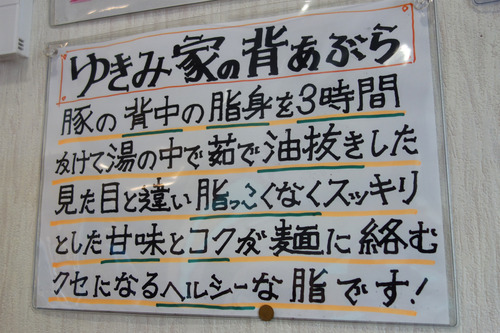 ゆきみ家の背あぶら
豚の背中の脂身を3時間
かけて湯の中で茹で油抜きした
見た目と違い脂っこくなくスッキリ
とした甘味とコクが麺に絡む
クセになるヘルシーな脂です!